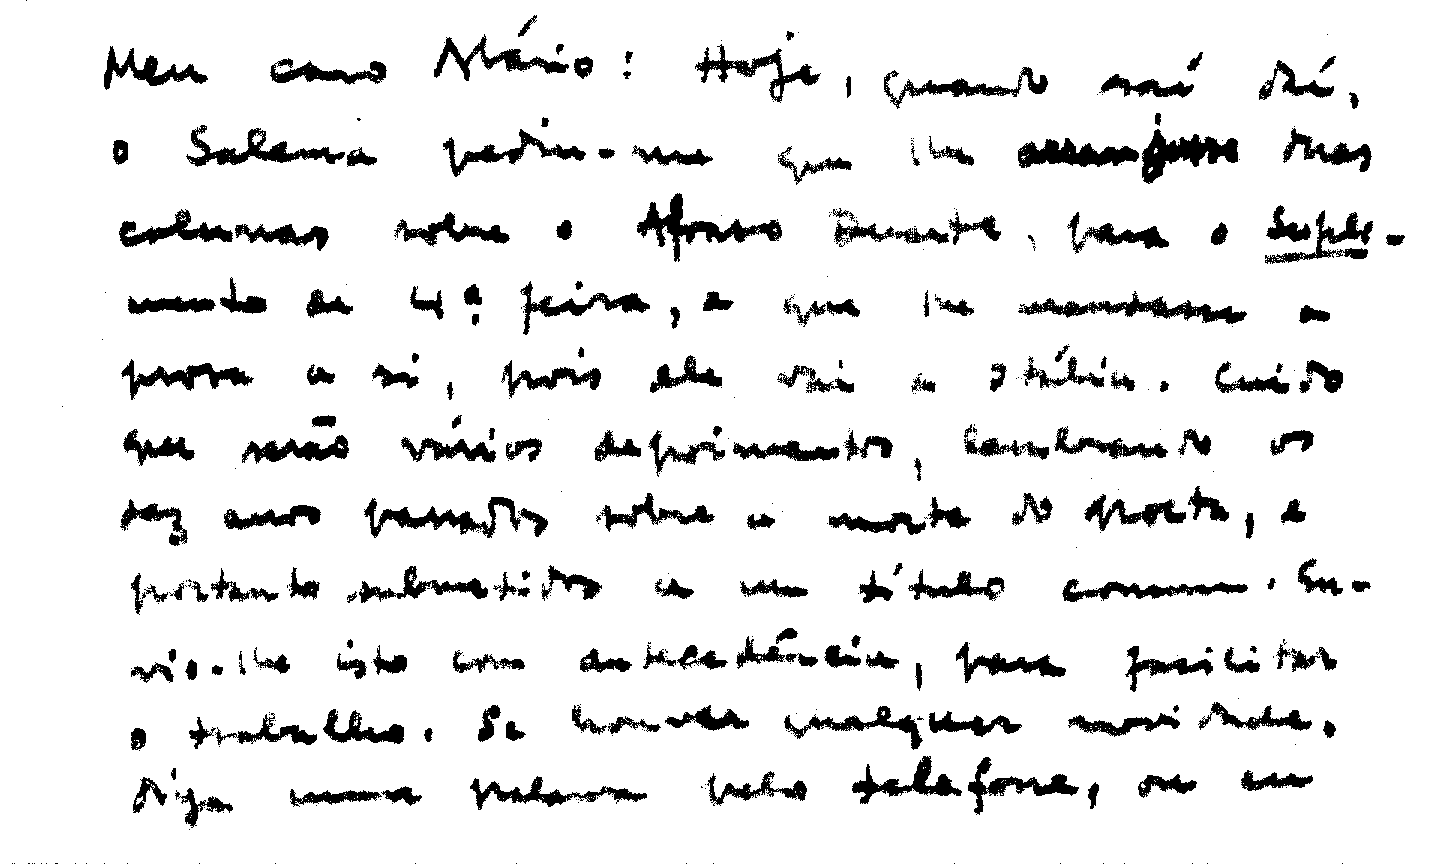 Meu caro Mário: Hoje, quando saí daí,
o Salema pediu-me que lhe arranjasse duas
colunas sobre o Afonso Duarte, para o Suple-
mento de 4.ª feira, e que lhe mandasse a
prova a si, pois ele vai a Itália. Cuido
que serão vários depoimentos, lembrando os
dez anos passados sobre a morte do poeta, e
portanto submetidos a um título comum. En-
vio-lhe isto com antecedência, para facilitar
o trabalho. Se houver qualquer novidade,
diga uma palavra pelo telefone, ou eu